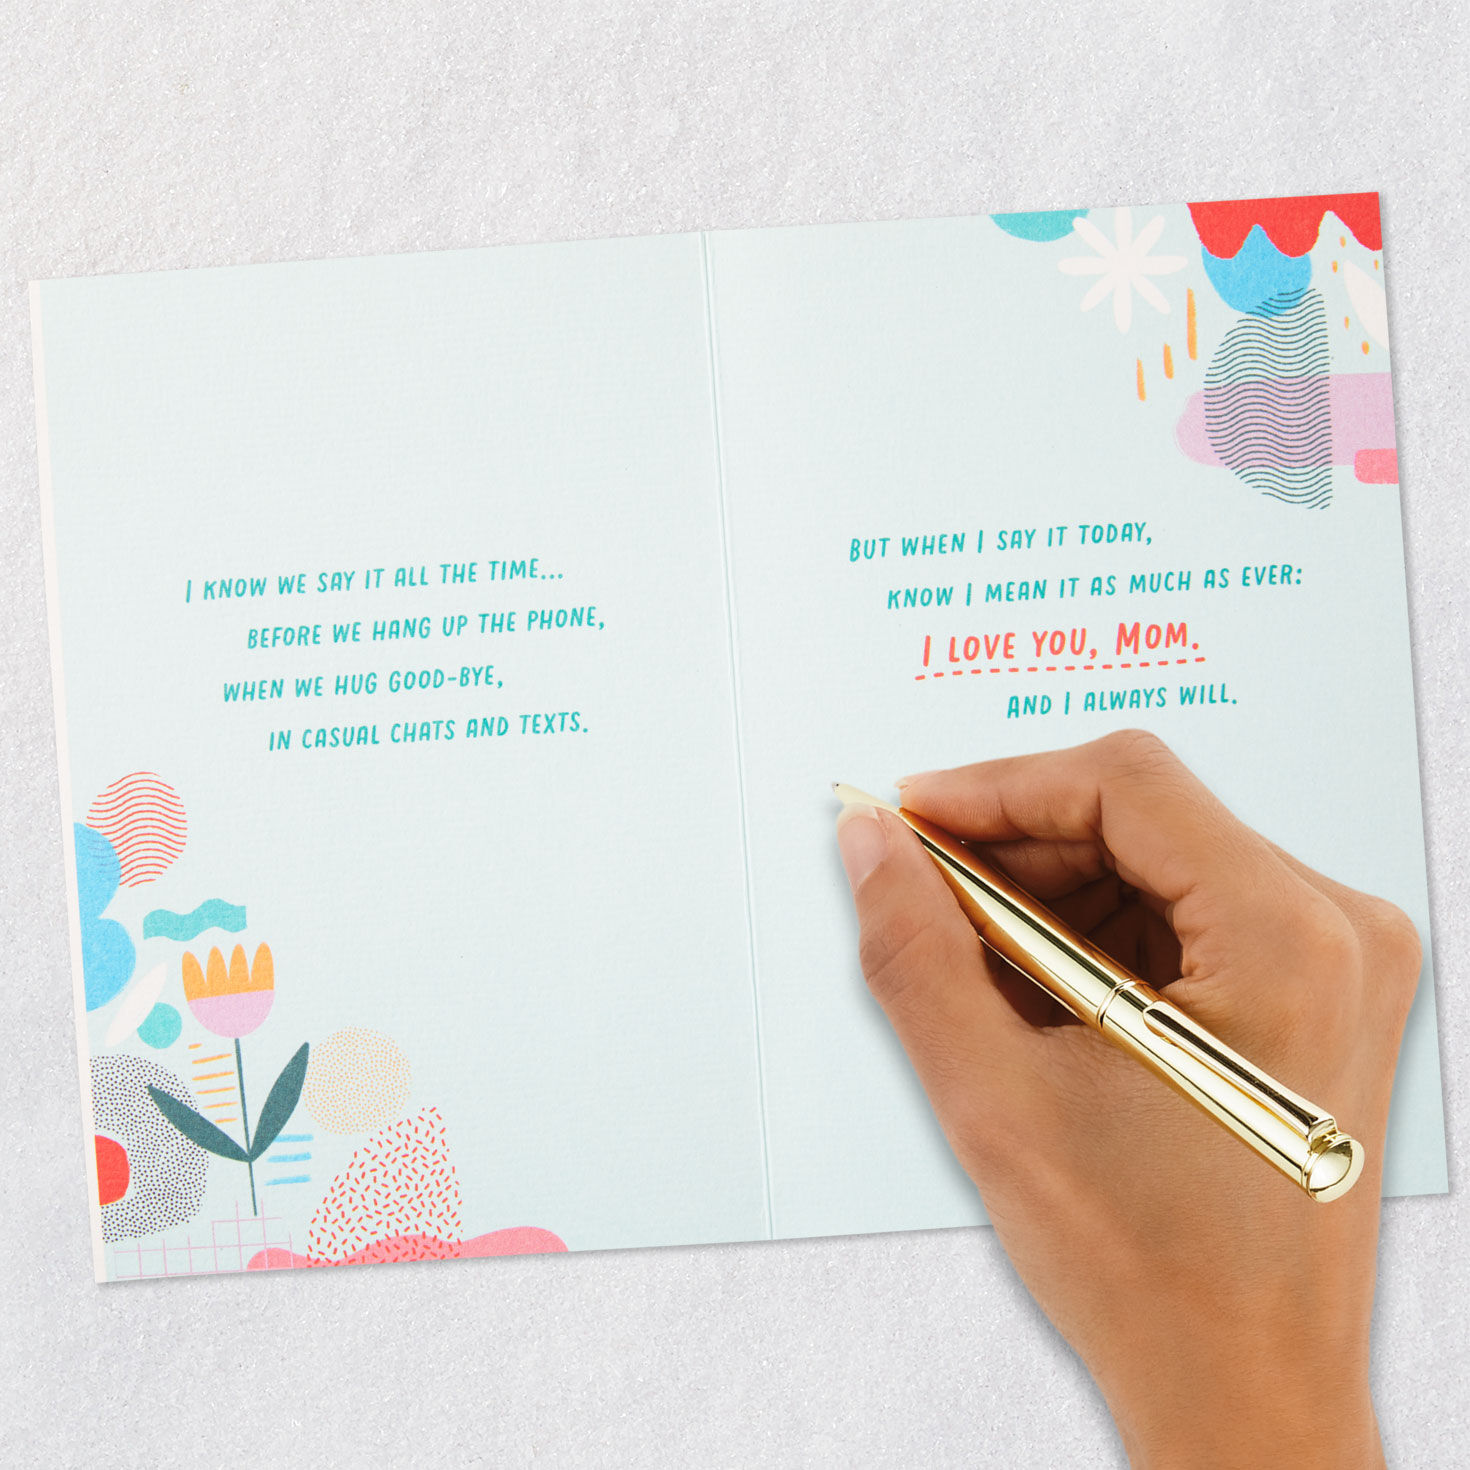 I KNOW WE SAY IT ALL THE TIME...
BEFORE WE HANG UP THE PHONE,
WHEN WE HUG GOOD-BYE,
IN CASUAL CHATS AND TEXTS.
BUT WHEN I SAY IT TODAY,
KNOW I MEAN IT AS MUCH AS EVER:
I LOVE YOU, MOM.
AND I ALWAYS WILL.